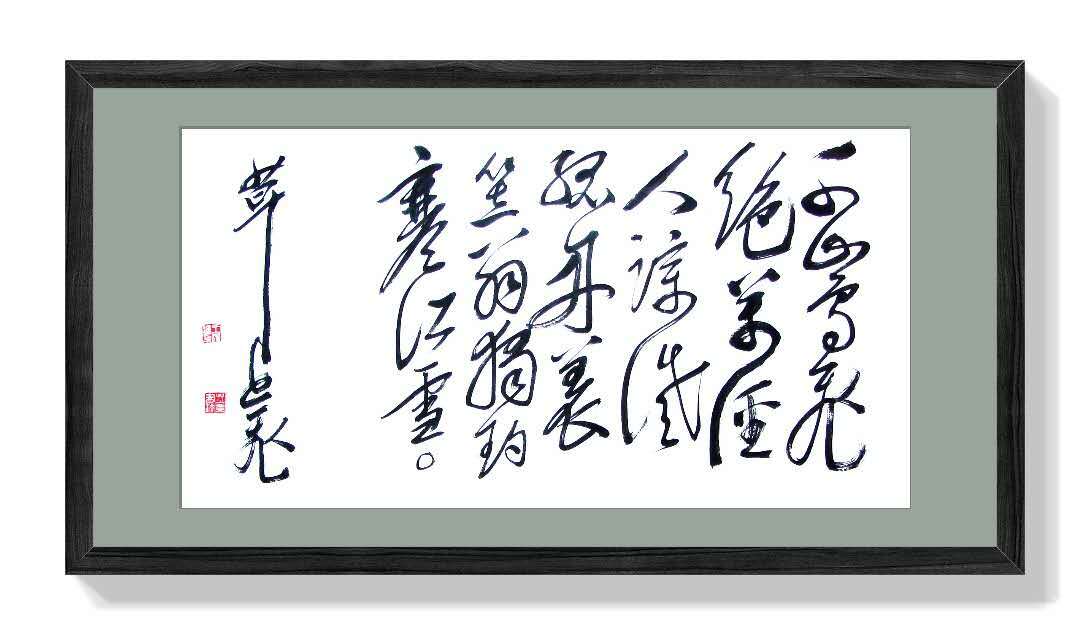 千山鳥飛
絕萬徑
人踪滅
孤舟蓑
笠翁獨釣
寒江雪。